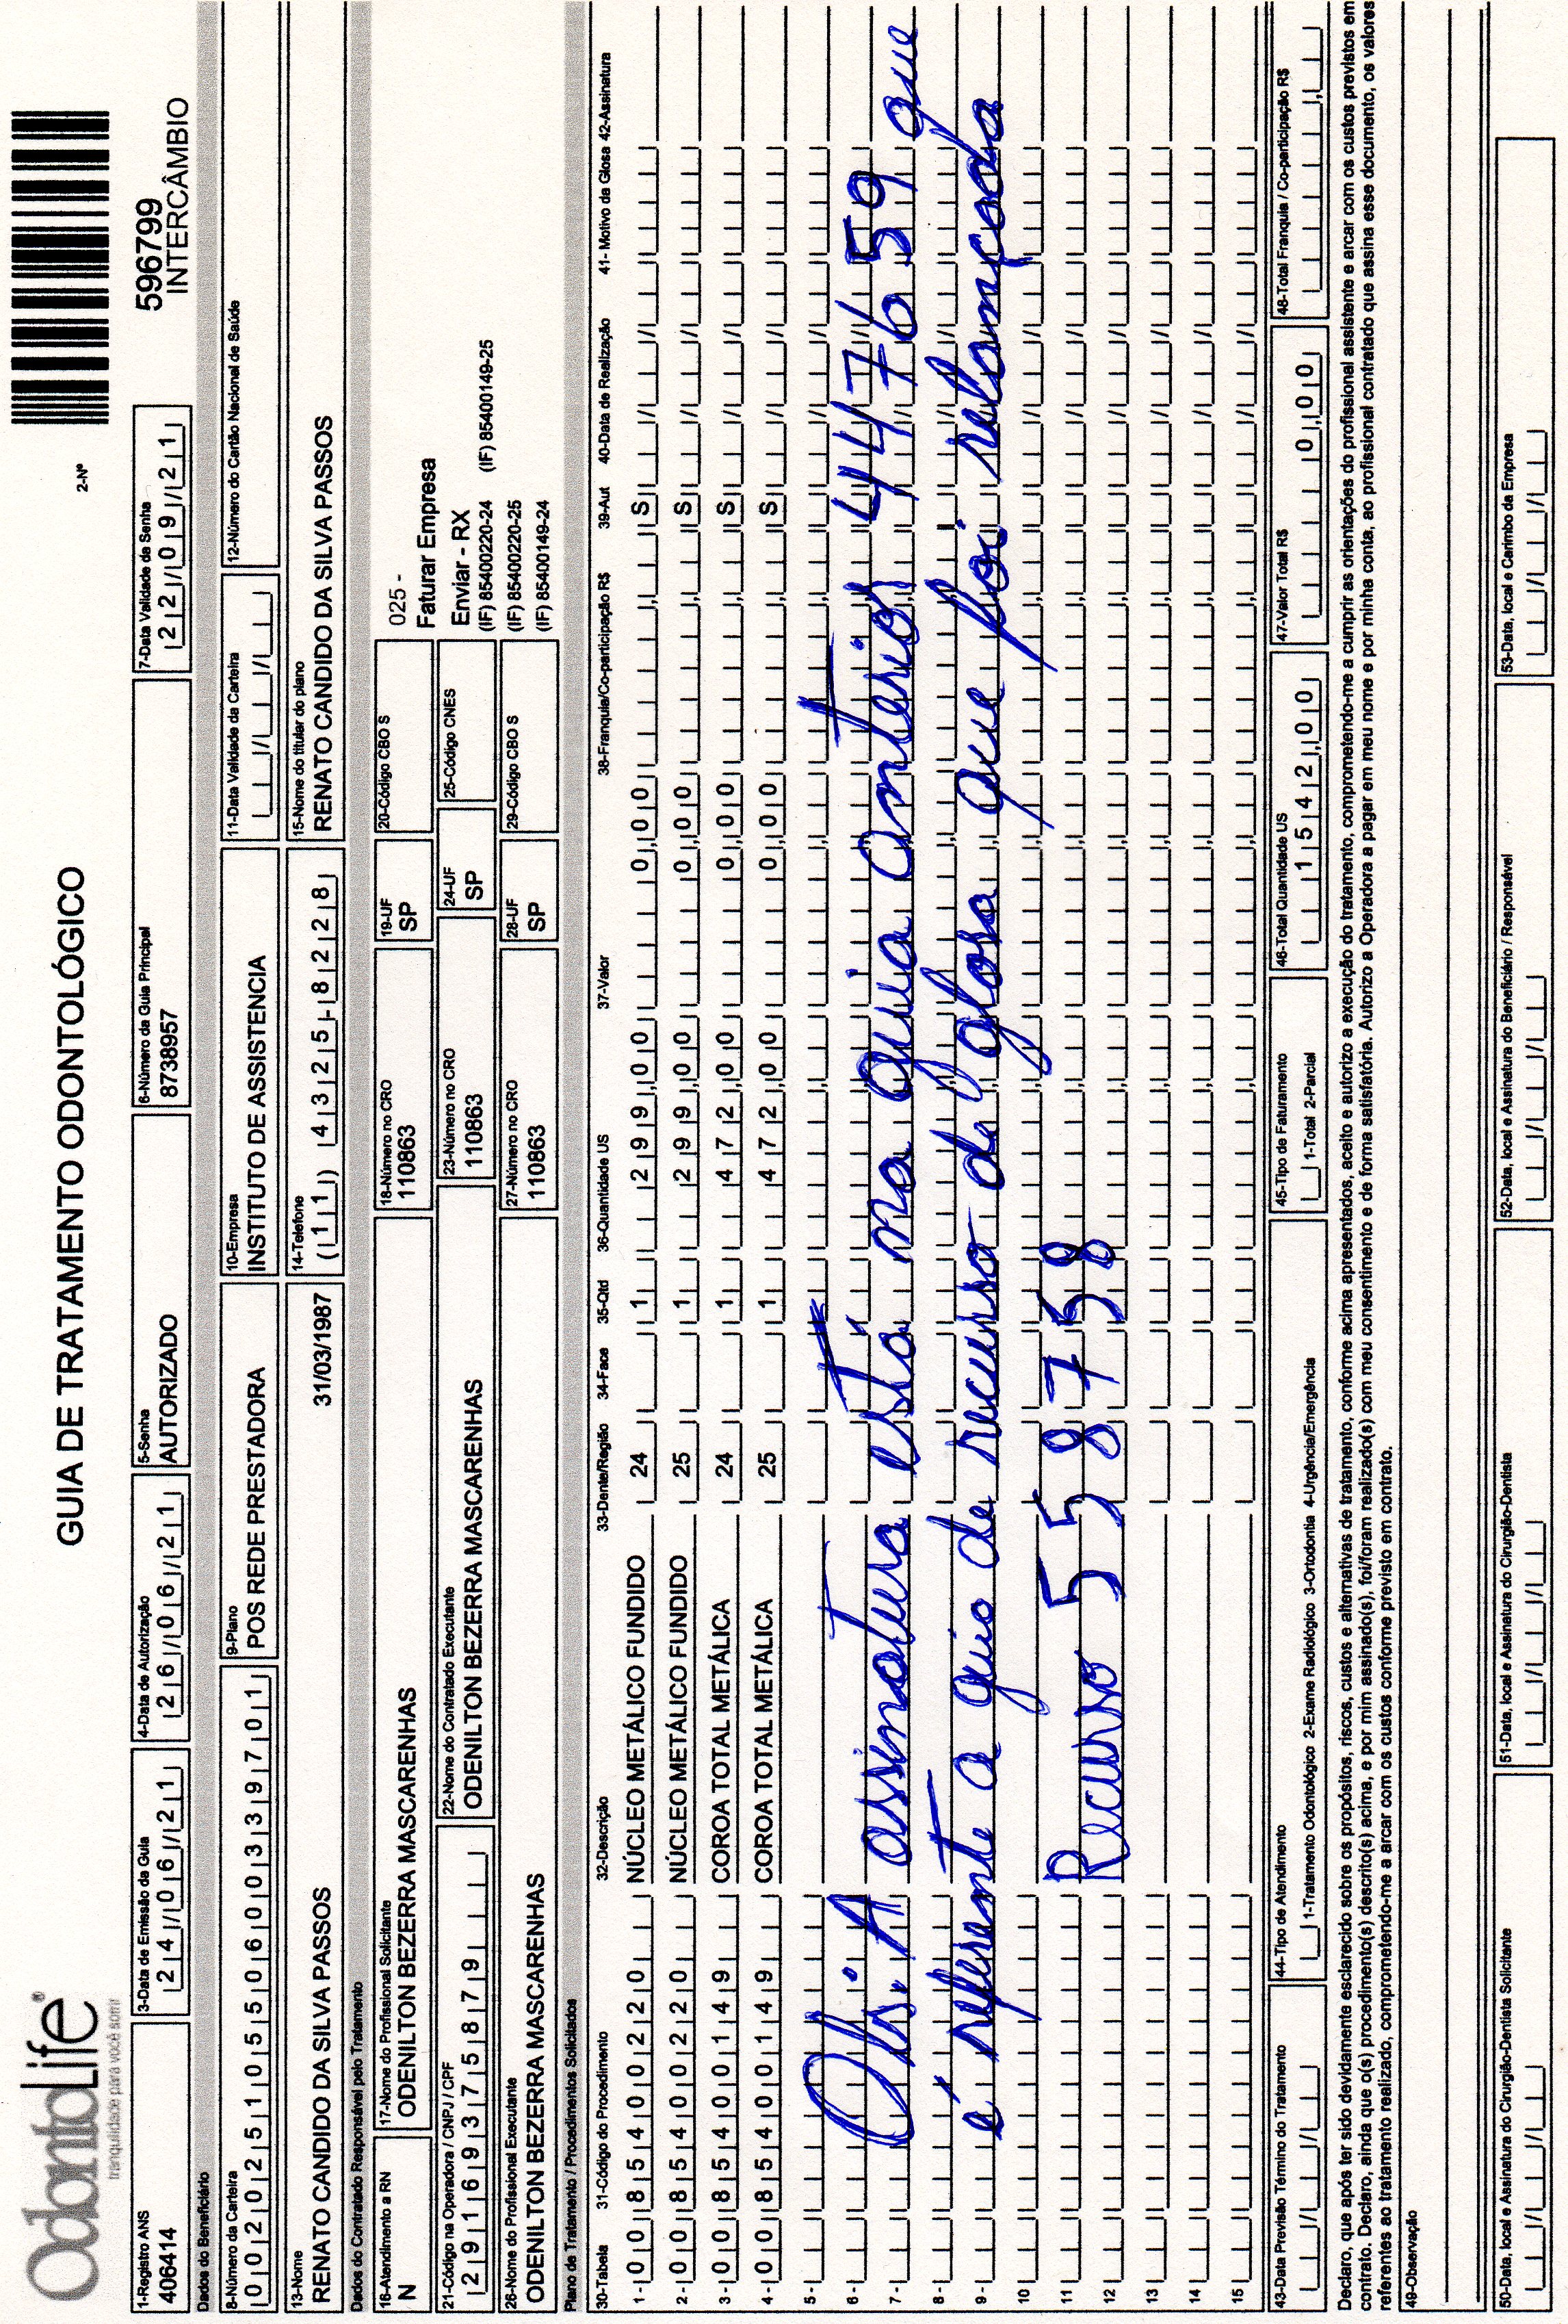 OdontoLife®
tranquilidade para você sorrir
GUIA DE TRATAMENTO ODONTOLÓGICO
2-Nº
596799
INTERCÂMBIO
1-Registro ANS
406414
3-Data de Emissão da Guia
24/06/21
4-Data de Autorização
26/06/21
5-Senha
AUTORIZADO
6-Número da Guia Principal
8738957
7-Data Validade da Senha
22/09/21
Dados do Beneficiário
8-Número da Carteira
00202510550600339701
9-Plano
POS REDE PRESTADORA
10-Empresa
INSTITUTO DE ASSISTENCIA
11-Data Validade da Carteira
12-Número do Cartão Nacional de Saúde
13-Nome
RENATO CANDIDO DA SILVA PASSOS
31/03/1987
14-Telefone
(11) 4325-8228
15-Nome do titular do plano
RENATO CANDIDO DA SILVA PASSOS
Dados do Contratado Responsável pelo Tratamento
16-Atendimento a RN
N
17-Nome do Profissional Solicitante
ODENILTON BEZERRA MASCARENHAS
18-Número no CRO
110863
19-UF
SP
20-Código CBO S
025 -
Faturar Empresa
21-Código na Operadora / CNPJ / CPF
29169375879
22-Nome do Contratado Executante
ODENILTON BEZERRA MASCARENHAS
23-Número no CRO
110863
24-UF
SP
25-Código CNES
Enviar - RX
(IF) 85400220-24 (IF) 85400149-25
26-Nome do Profissional Executante
ODENILTON BEZERRA MASCARENHAS
27-Número no CRO
110863
28-UF
SP
29-Código CBO S
(IF) 85400220-25
(IF) 85400149-24
Plano de Tratamento / Procedimentos Solicitados
30-Tabela 31-Código do Procedimento 32-Descrição 33-Dente/Região 34-Face 35-Qtd 36-Quantidade US 37-Valor 38-Franquia/Co-participação R$ 39-Aut 40-Data de Realização 41- Motivo da Glosa 42-Assinatura
1- 00 85400220 NÚCLEO METÁLICO FUNDIDO 24 1 299,00 0,00 S
2- 00 85400220 NÚCLEO METÁLICO FUNDIDO 25 1 299,00 0,00 S
3- 00 85400149 COROA TOTAL METÁLICA 24 1 472,00 0,00 S
4- 00 85400149 COROA TOTAL METÁLICA 25 1 472,00 0,00 S
5-
6-
7-
8-
9-
10
11
12
13
14
15
Obs: A assinatura está na guia anterior 447659 que
é referente a guia de recurso de glosa que foi relançada
Recurso 558758
43-Data Previsão Término do Tratamento
44-Tipo de Atendimento
1-Tratamento Odontológico 2-Exame Radiológico 3-Ortodontia 4-Urgência/Emergência
45-Tipo de Faturamento
1-Total 2-Parcial
46-Total Quantidade US
1542,00
47-Valor Total R$
0,00
48-Total Franquia / Co-participação R$
Declaro, que após ter sido devidamente esclarecido sobre os propósitos, riscos, custos e alternativas de tratamento, conforme acima apresentados, aceito e autorizo a execução do tratamento, comprometendo-me a cumprir as orientações do profissional assistente e arcar com os custos previstos em
contrato. Declaro, ainda que o(s) procedimento(s) descrito(s) acima, e por mim assinado(s), foi/foram realizado(s) com meu consentimento e de forma satisfatória. Autorizo a Operadora a pagar em meu nome e por minha conta, ao profissional contratado que assina esse documento, os valores
referentes ao tratamento realizado, comprometendo-me a arcar com os custos conforme previsto em contrato.
49-Observação
50-Data, local e Assinatura do Cirurgião-Dentista Solicitante
51-Data, local e Assinatura do Cirurgião-Dentista
52-Data, local e Assinatura do Beneficiário / Responsável
53-Data, local e Carimbo da Empresa